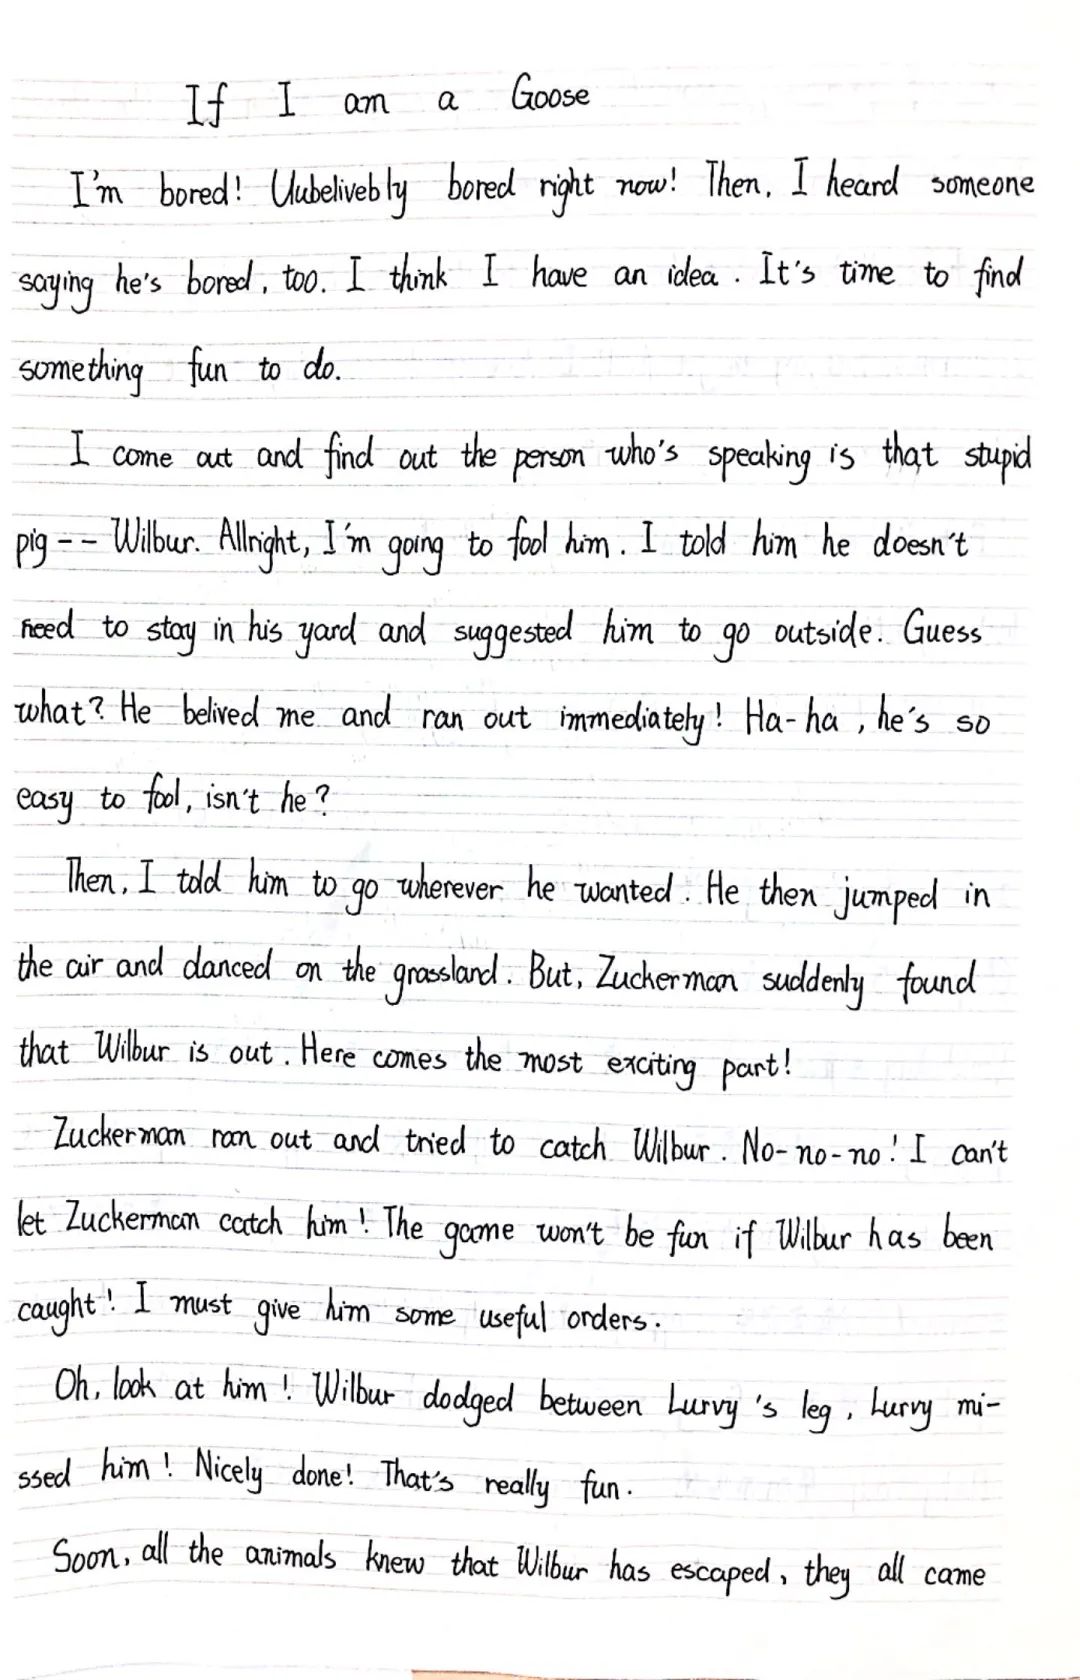 If I am a Goose
I'm bored! Uubelivebly bored right now! Then, I heard someone
saying he's bored, too. I think I have an idea. It's time to find
something fun to do.
I come out and find out the person who's speaking is that stupid
pig -- Wilbur. Allright, I'm going to fool him. I told him he doesn't
need to stay in his yard and suggested him to go outside. Guess
what? He belived me and ran out immediately! Ha-ha, he's so
easy to fool, isn't he?
Then, I told him to go wherever he wanted. He then jumped in
the air and danced on the grassland. But, Zuckerman suddenly found
that Wilbur is out. Here comes the most exciting part!
Zuckerman ran out and tried to catch Wilbur. No-no-no! I can't
let Zuckerman catch him! The game won't be fun if Wilbur has been
caught! I must give him some useful orders.
Oh, look at him! Wilbur dodged between Lurvy's leg, Lurvy mi-
ssed him! Nicely done! That's really fun.
Soon, all the animals knew that Wilbur has escaped, they all came